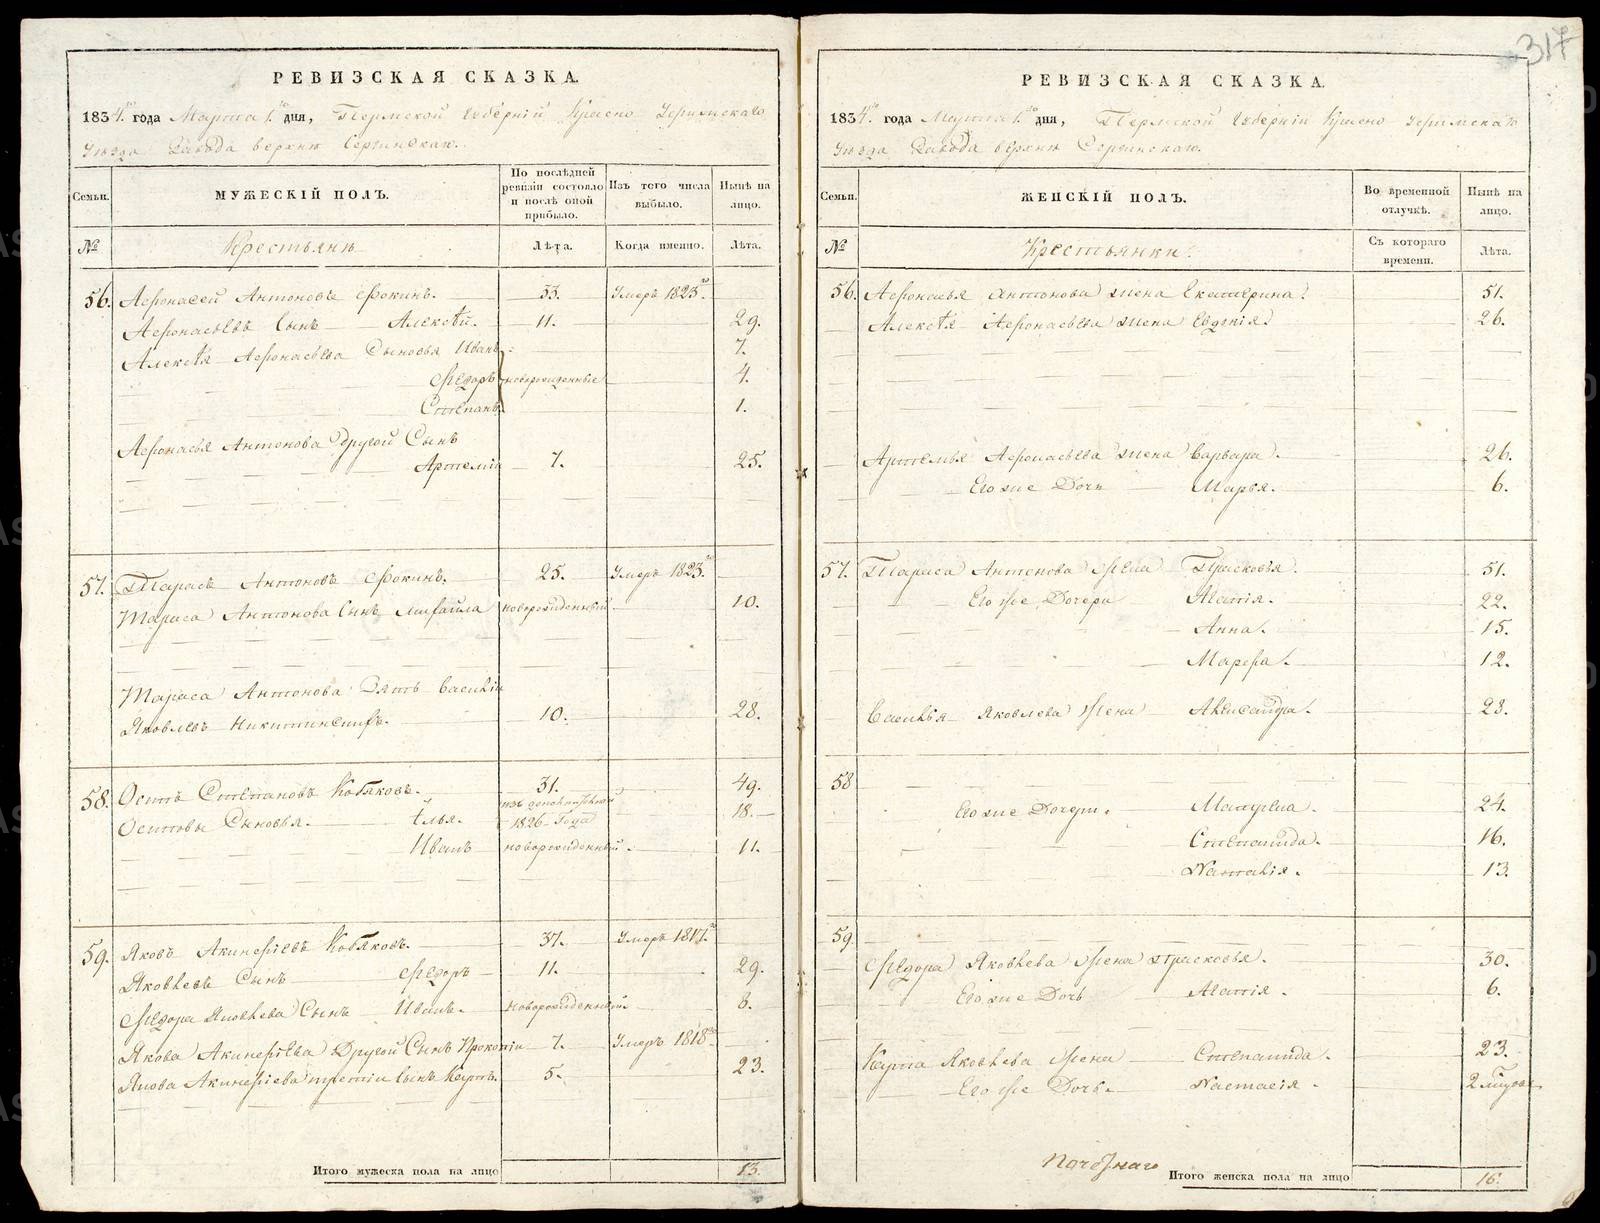 317
РЕВИЗСКАЯ СКАЗКА.
1834 года Марта 1 дня, Пермской Губерніи Красно Уфимскаго
Уѣзда Завода верхне Сергинскаго.
Семьи.
МУЖЕСКІЙ ПОЛЪ.
По послѣдней ревизіи состояло и послѣ оной прибыло.
Изъ того числа выбыло.
Нынѣ на лицо.
№
Крестьяне
Лѣта.
Когда именно.
Лѣта.
56. Афонасей Антоновъ Фокинъ. 33. Умеръ 1823
Афонасьевъ Сынъ Алексѣй. 11. 29.
Алексѣя Афонасьева Сыновья Иванъ 7.
Федоръ новорожденные 4.
Степанъ 1.
Афонасья Антонова другой Сынъ
Артемій 7. 25.
57. Тарасъ Антоновъ Фокинъ. 25. Умеръ 1823
Тараса Антонова Сынъ Михайла новорожденный 10.
Тараса Антонова Зять Василій
Яковлевъ 10. 28.
58. Осипъ Степановъ Кобяковъ. 31. 49.
Осиповы Сыновья. Илья. 1826 Года 18.
Иванъ новорожденный. 11.
59. Яковъ Акинфіевъ Кобяковъ. 37. Умеръ 1817
Яковлевъ Сынъ Федоръ 11. 29.
Федора Яковлева Сынъ Иванъ. Новорожденный. 8.
Якова Акинфіева Другой Сынъ Прокопій 7. Умеръ 1818
Якова Акинфіева третій Сынъ Карпъ. 5. 23.
Итого мужеска пола на лицо 13.
РЕВИЗСКАЯ СКАЗКА.
1834 года Марта 1 дня, Пермской Губерніи Красно Уфимскаго
Уѣзда Завода верхне Сергинскаго.
Семьи.
ЖЕНСКІЙ ПОЛЪ.
Во временной отлучкѣ.
Нынѣ на лицо.
№
Крестьянки.
Съ котораго времени.
Лѣта.
56. Афонасья Антонова жена Екатерина. 51.
Алексѣя Афонасьева жена Евгенія. 26.
Артемья Афонасьева жена Варвара. 26.
Его же Дочь Марья. 6.
57. Тараса Антонова Жена Прасковья. 51.
Его же Дочери Агапія. 22.
Анна. 15.
Марфа. 12.
Василья Яковлева Жена Александра. 28.
58
Его же Дочери. 24.
Степанида. 16.
Наталія. 13.
59.
Федора Яковлева Жена Прасковья. 30.
Его же Дочь Агапія. 6.
Карпа Яковлева Жена Степанида. 23.
Его же Дочь. Настасія. 2
Итого женска пола на лицо 16.